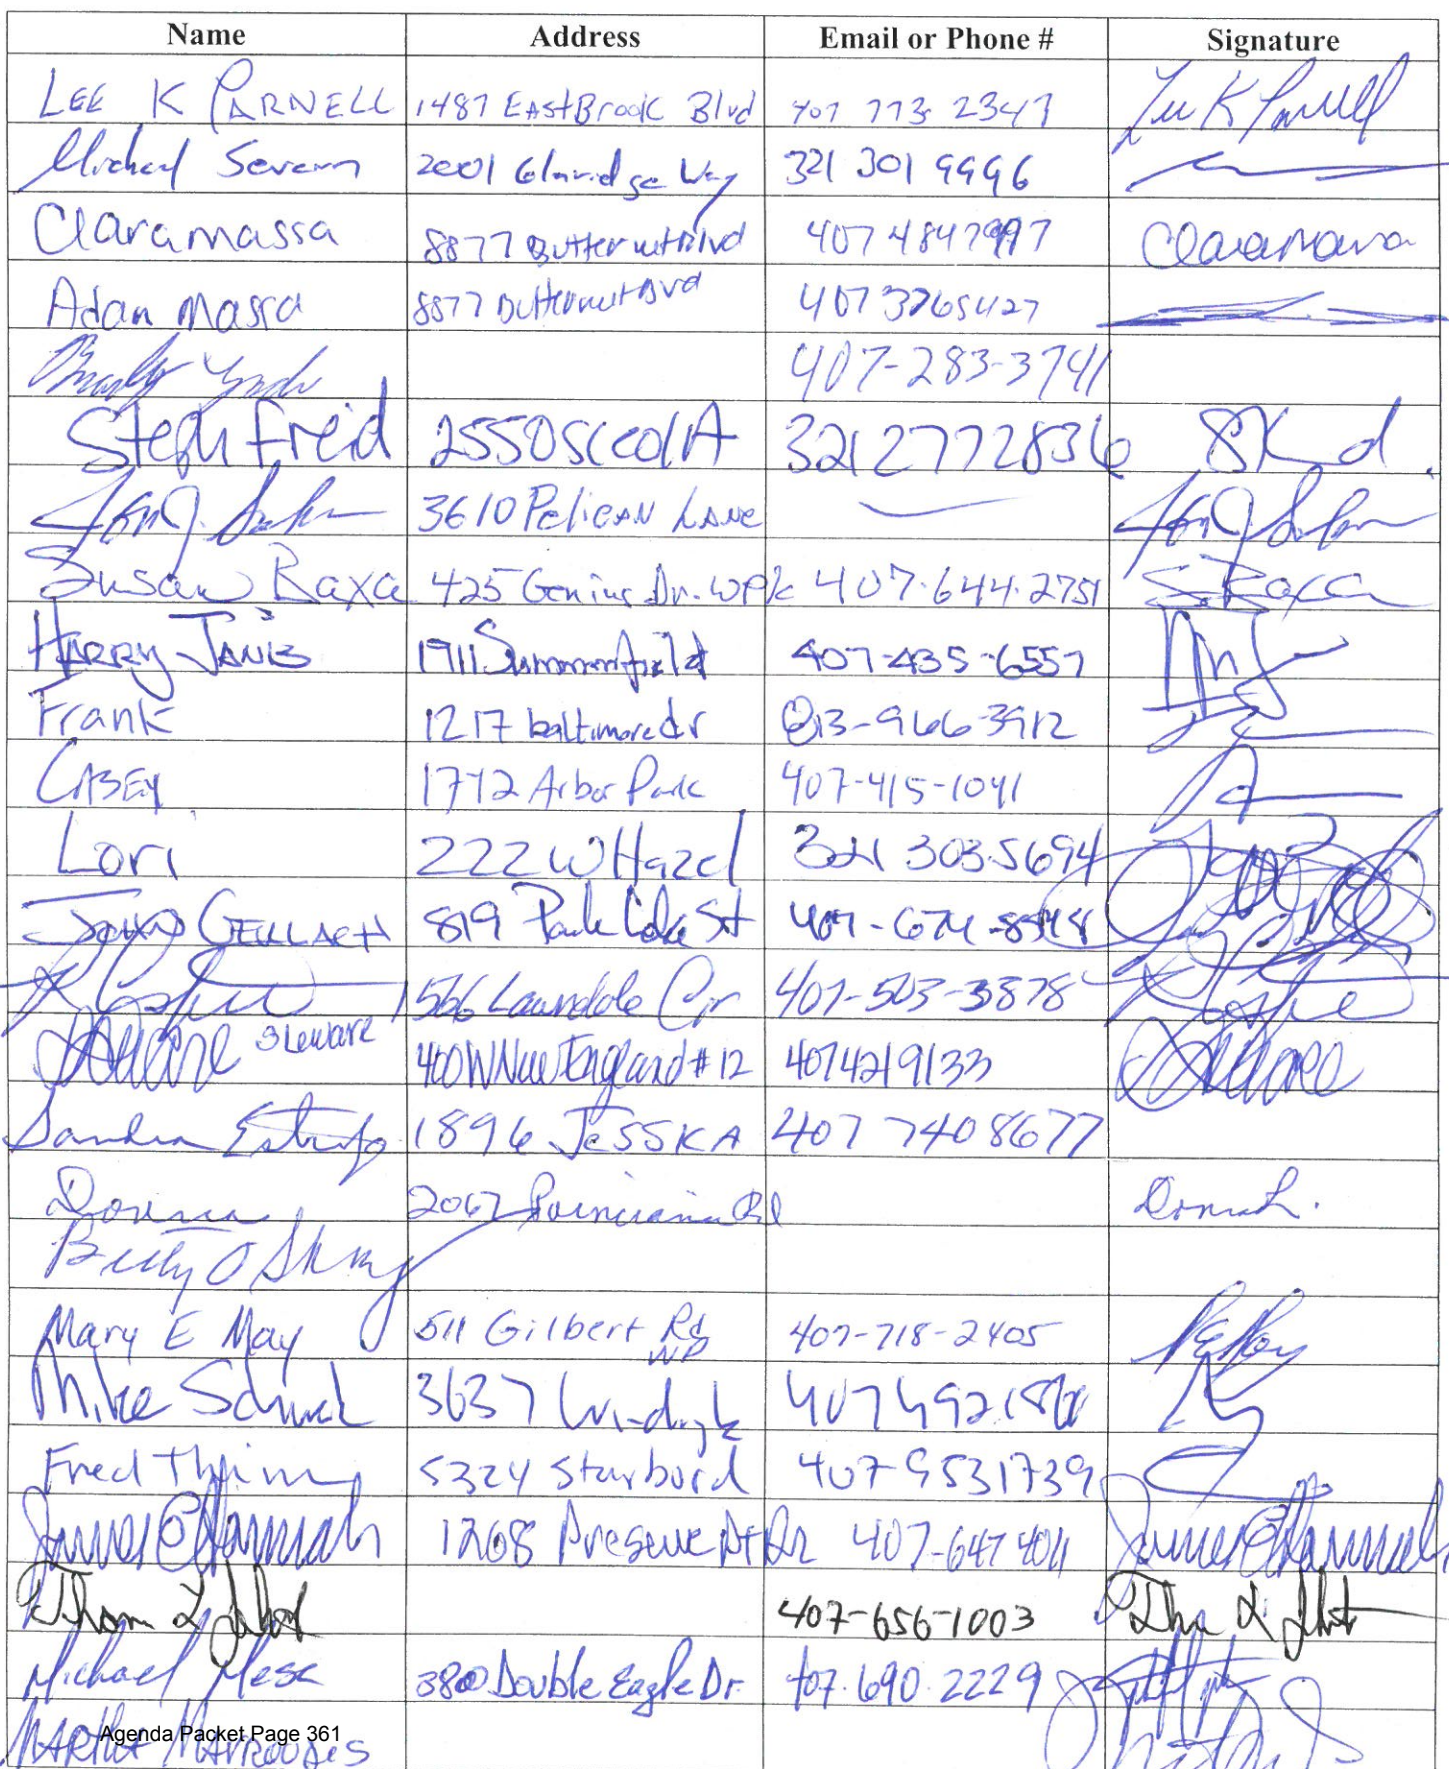 Name Address Email or Phone # Signature
LEE K PARNELL 1487 EASTBrook Blvd 407 773 2347 Lee K Parnell
Michael Severn 2001 Glenridge Way 321 301 9996
Clara massa 8877 Butternut Blvd 407 484 7997 Clara massa
Adan Massa 8877 Butternut Blvd 407 3765427
407-283-3741
Steph Freid 2550 321 2772836
3610 Pelican Lane
Susan Raxa 425 Genius Dr. WPk 407.644.2751 S. Raxa
HARRY JANIS 1911 Summerfield 407-435-6557
Frank 1217 baltimore dr 813-966-3912
CASEY 1772 Arbor Park 407-415-1041
Lori 222 W Hazel 321 303.5694
JOHN GERLACH 819 Park Lake St 407-674-
1566 Lawndale Cir 407-503-3878
Steware 400 W New England #12 4074219133
Sandra 1896 JESSKA 407 7408677
Donna 2067 Poinciana Rd Donna L.
Billy O
Mary E May 511 Gilbert Rd WP 407-718-2405 MEMay
Mike 3637
Fred 5324 Starbord 407 9531739
James E Hannah 1268 Preserve Pt Dr 407-647 4011 James E Hannah
Thom L 407-656-1003
Michael Mesa 380 Double Eagle Dr. 407.690.2229
MARTHA
Agenda Packet Page 361